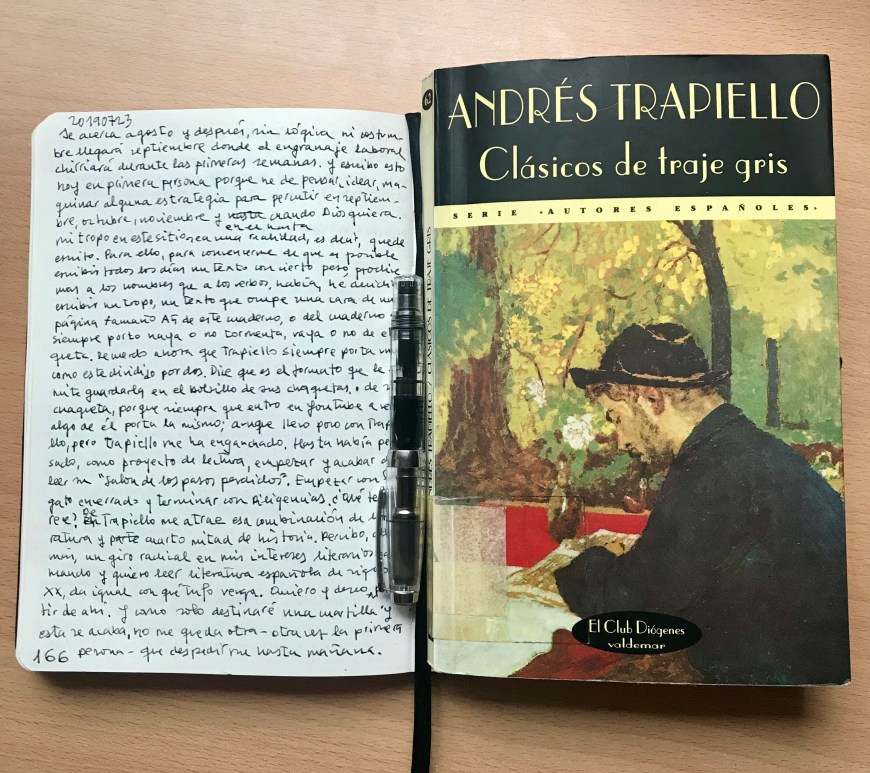 20190723
Se acerca agosto y después, sin lógica ni costum-
bre llegará septiembre donde el engranaje laboral
chirriará durante las primeras semanas. Y escribo esto
hoy en primera persona porque he de pensar, idear, ma-
quinar alguna estrategia para permitir en septiem-
bre, octubre, noviembre y hasta cuando Dios quiera.
mi tropo en este sitio, sea una realidad, es decir, quede
escrito. Para ello, para convencerme de que es posible
escribir todos los días un texto con cierto peso
mas a los nombres que a los verbos, había, he
escribir un tropo, un texto que ocupe una cara de
página tamaño A5 de este cuaderno, o del cuaderno
siempre porto haya o no tormenta, vaya o no de
queta. Recuerdo ahora que Trapiello siempre porta
como este dividido por dos. Dice que es el formato que le
mite guardarla en el bolsillo de sus chaquetas, o de
chaqueta, porque siempre que entro en youtube a
algo de él porta la misma; aunque llevo poco con Trap
llo, pero Trapiello me ha enganchado. Hasta había pe
sado, como proyecto de lectura, empezar y acabar
leer su "Salón de los pasos perdidos". Empezar con
gato encerrado y terminar con Diligencias. ¿Qué te
rece? De Trapiello me atrae esa combinación de
ratura y parte cuarto mitad de historia. Percibo,
más, un giro radical en mis intereses literarios
mando y quiero leer literatura española de
XX, da igual con qué tufo venga. Quiero y deseo
tir de ahí. Y como solo destinaré una cartilla y
esta se acaba, no me queda otra - otra vez la primera
persona - que despedirme hasta mañana.
166
62
TRAPIELLO / CLÁSICOS DE TRAJE GRIS
ANDRÉS TRAPIELLO
Clásicos de traje gris
SERIE «AUTORES ESPAÑOLES»
El Club Diógenes
valdemar